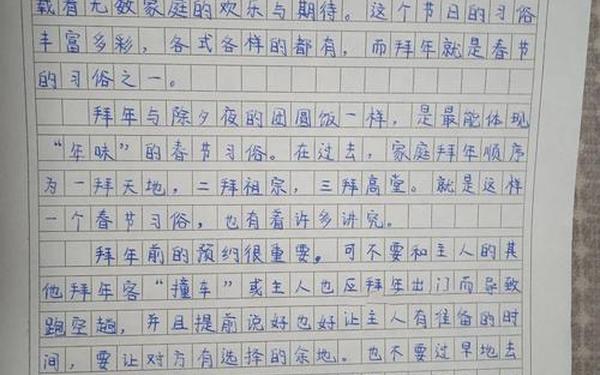 载着无数家庭的欢乐与期待。这个节日的习俗
丰富多彩，各式各样的都有，而拜年就是春节
的习俗之一。
拜年与除夕夜的团圆饭一样，是最能体现
“年味”的春节习俗。在过去，家庭拜年顺序
为一拜天地，二拜祖宗，三拜高堂。就是这样
一个春节习俗，也有着许多讲究。
拜年前的预约很重要。可不要和主人的其
他拜年客“撞车”或主人也应拜年出门而导致
跑空趟，并且提前说好也好让主人有准备的时
间，要让对方有选择的余地。也不要过早地去